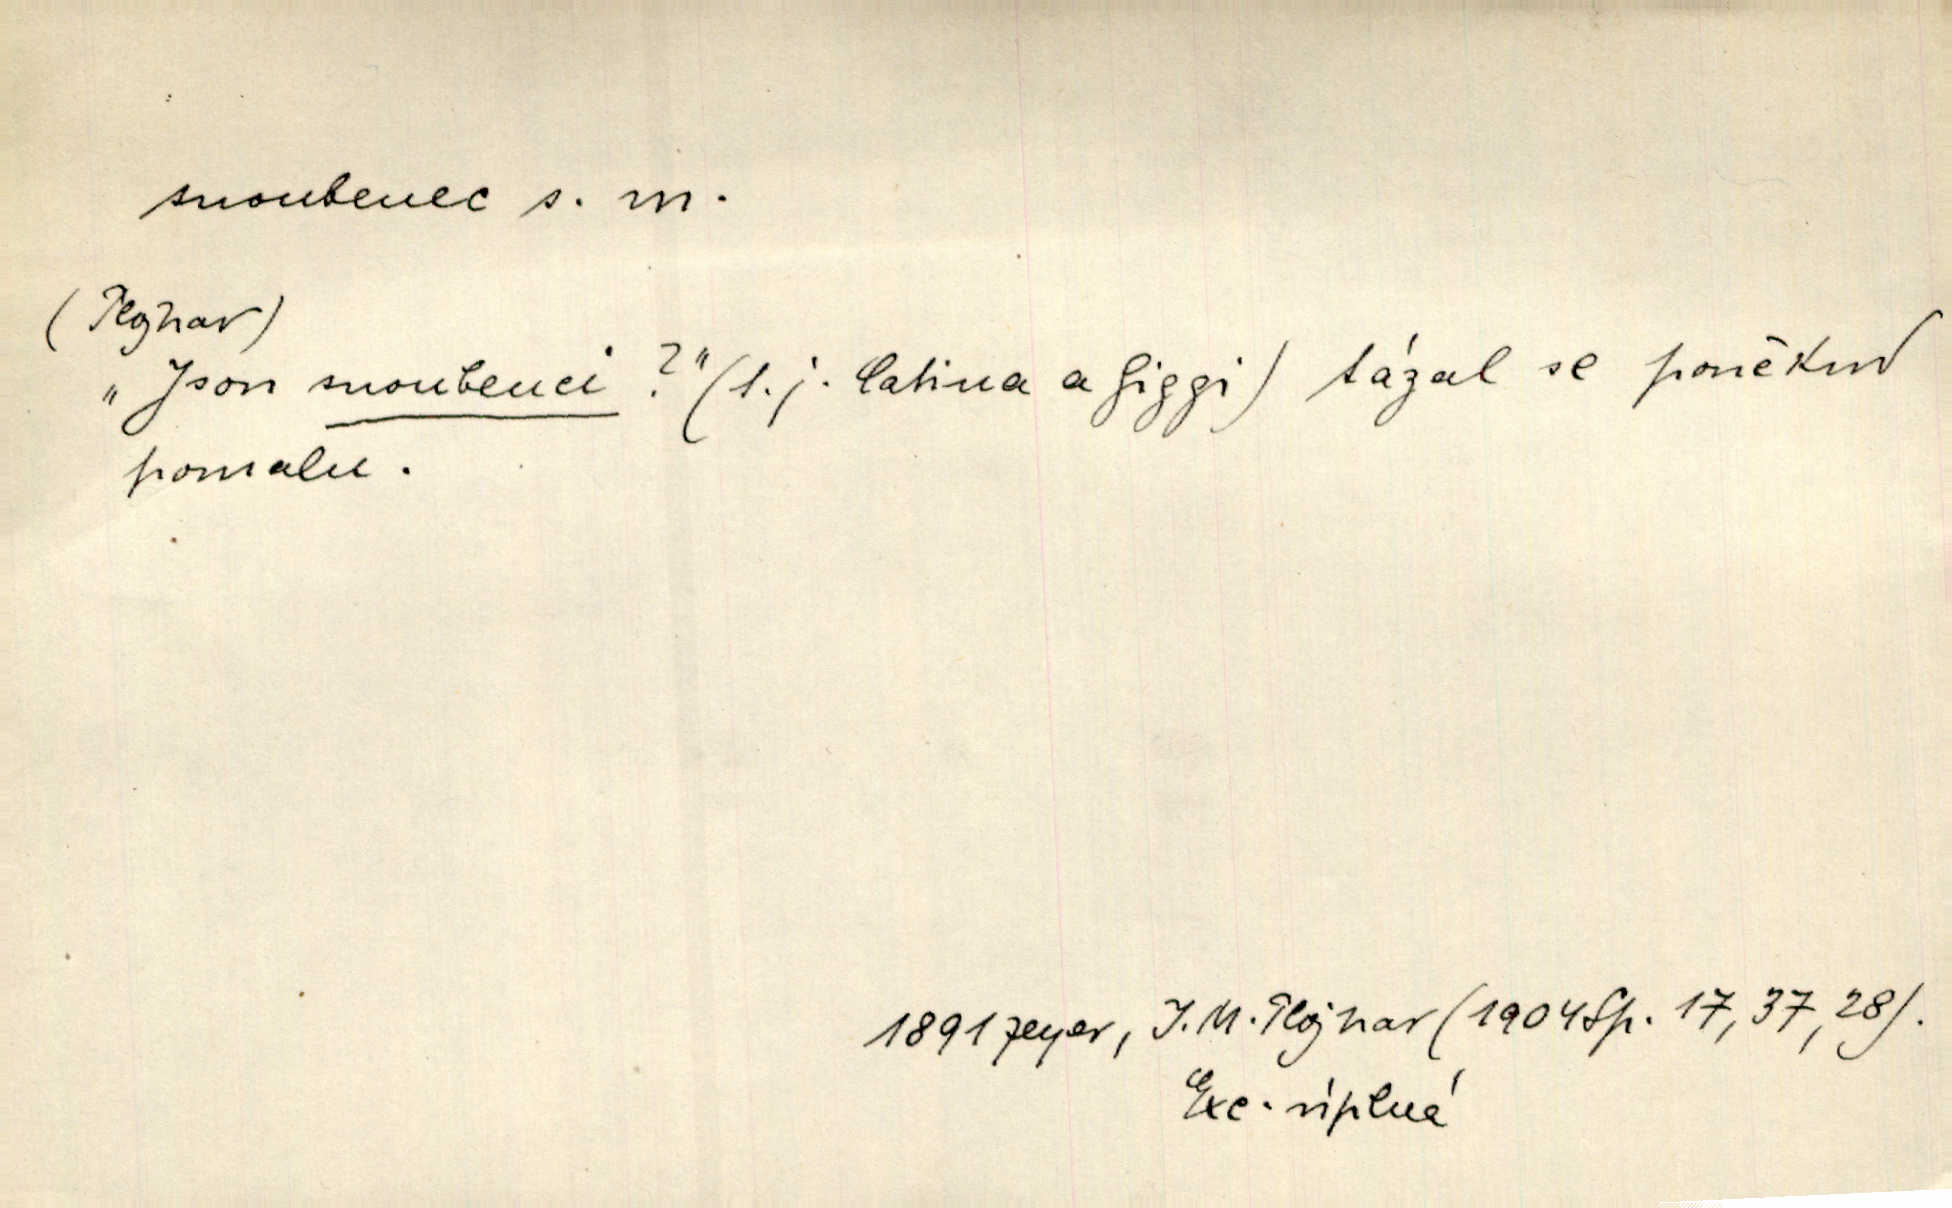 snoubenec s. m.
(Plojhar)
„Jsou snoubenci?" (t. j. Catina a Giggi) tázal se poněkud
pomalu.
1891 Zeyer, J. M. Plojhar (1904 Sp. 17, 37, 28).
Exc. úplná